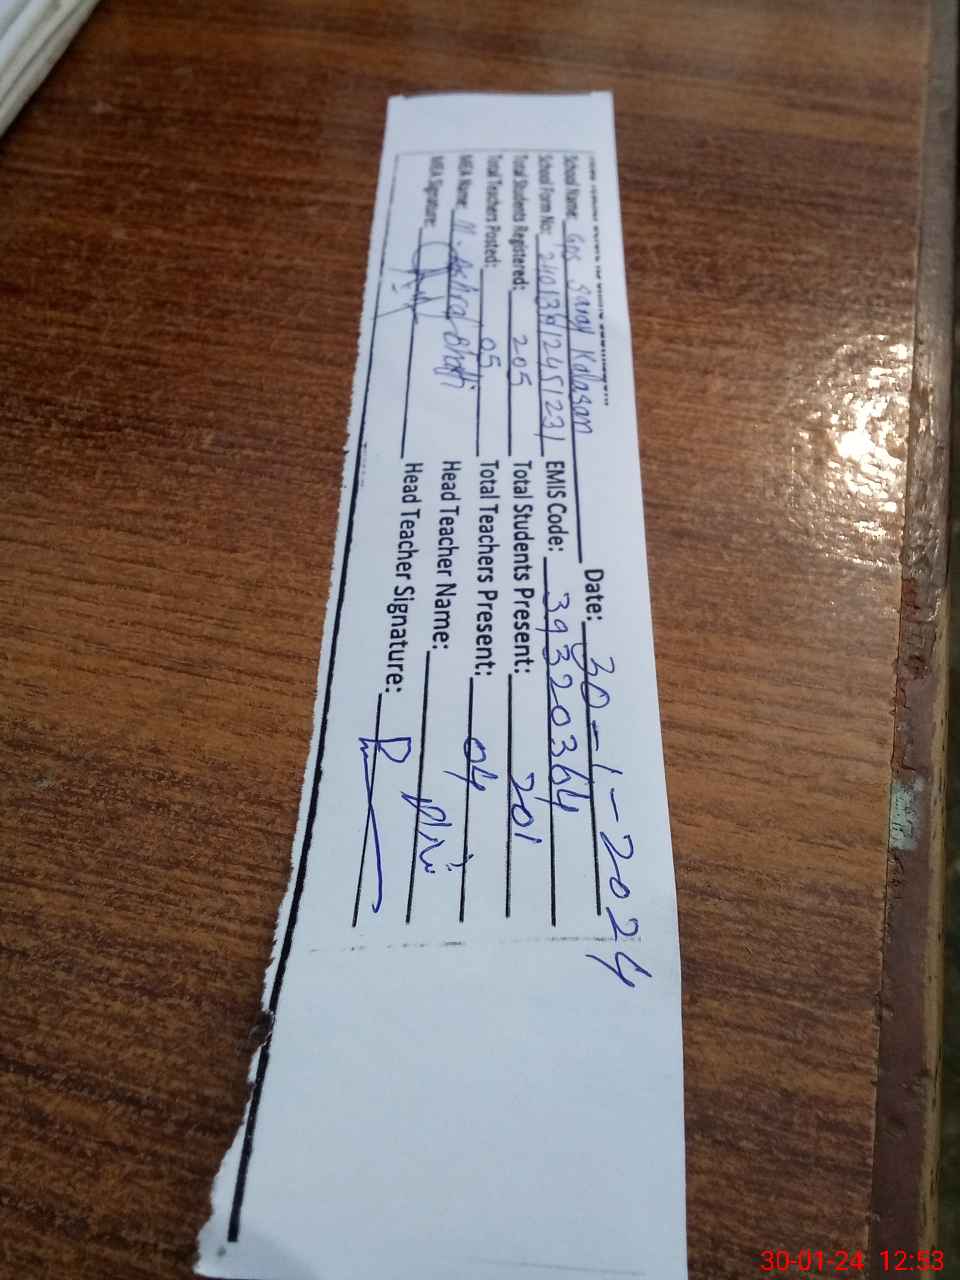 School Name: GPS Saray Kalasan Date: 30-1-2024
School Form No: EMIS Code: 39320364
Total Students Registered: 205 Total Students Present: 201
Total Teachers Posted: 05 Total Teachers Present: 04
MEA Name: M. Ashraf Bhatti Head Teacher Name:
MEA Signature: Head Teacher Signature:
30-01-24 12:53